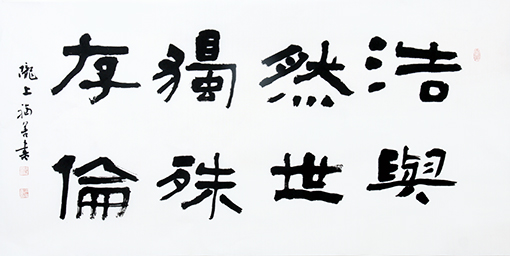 浩然獨存
與世殊倫
隴上福善書